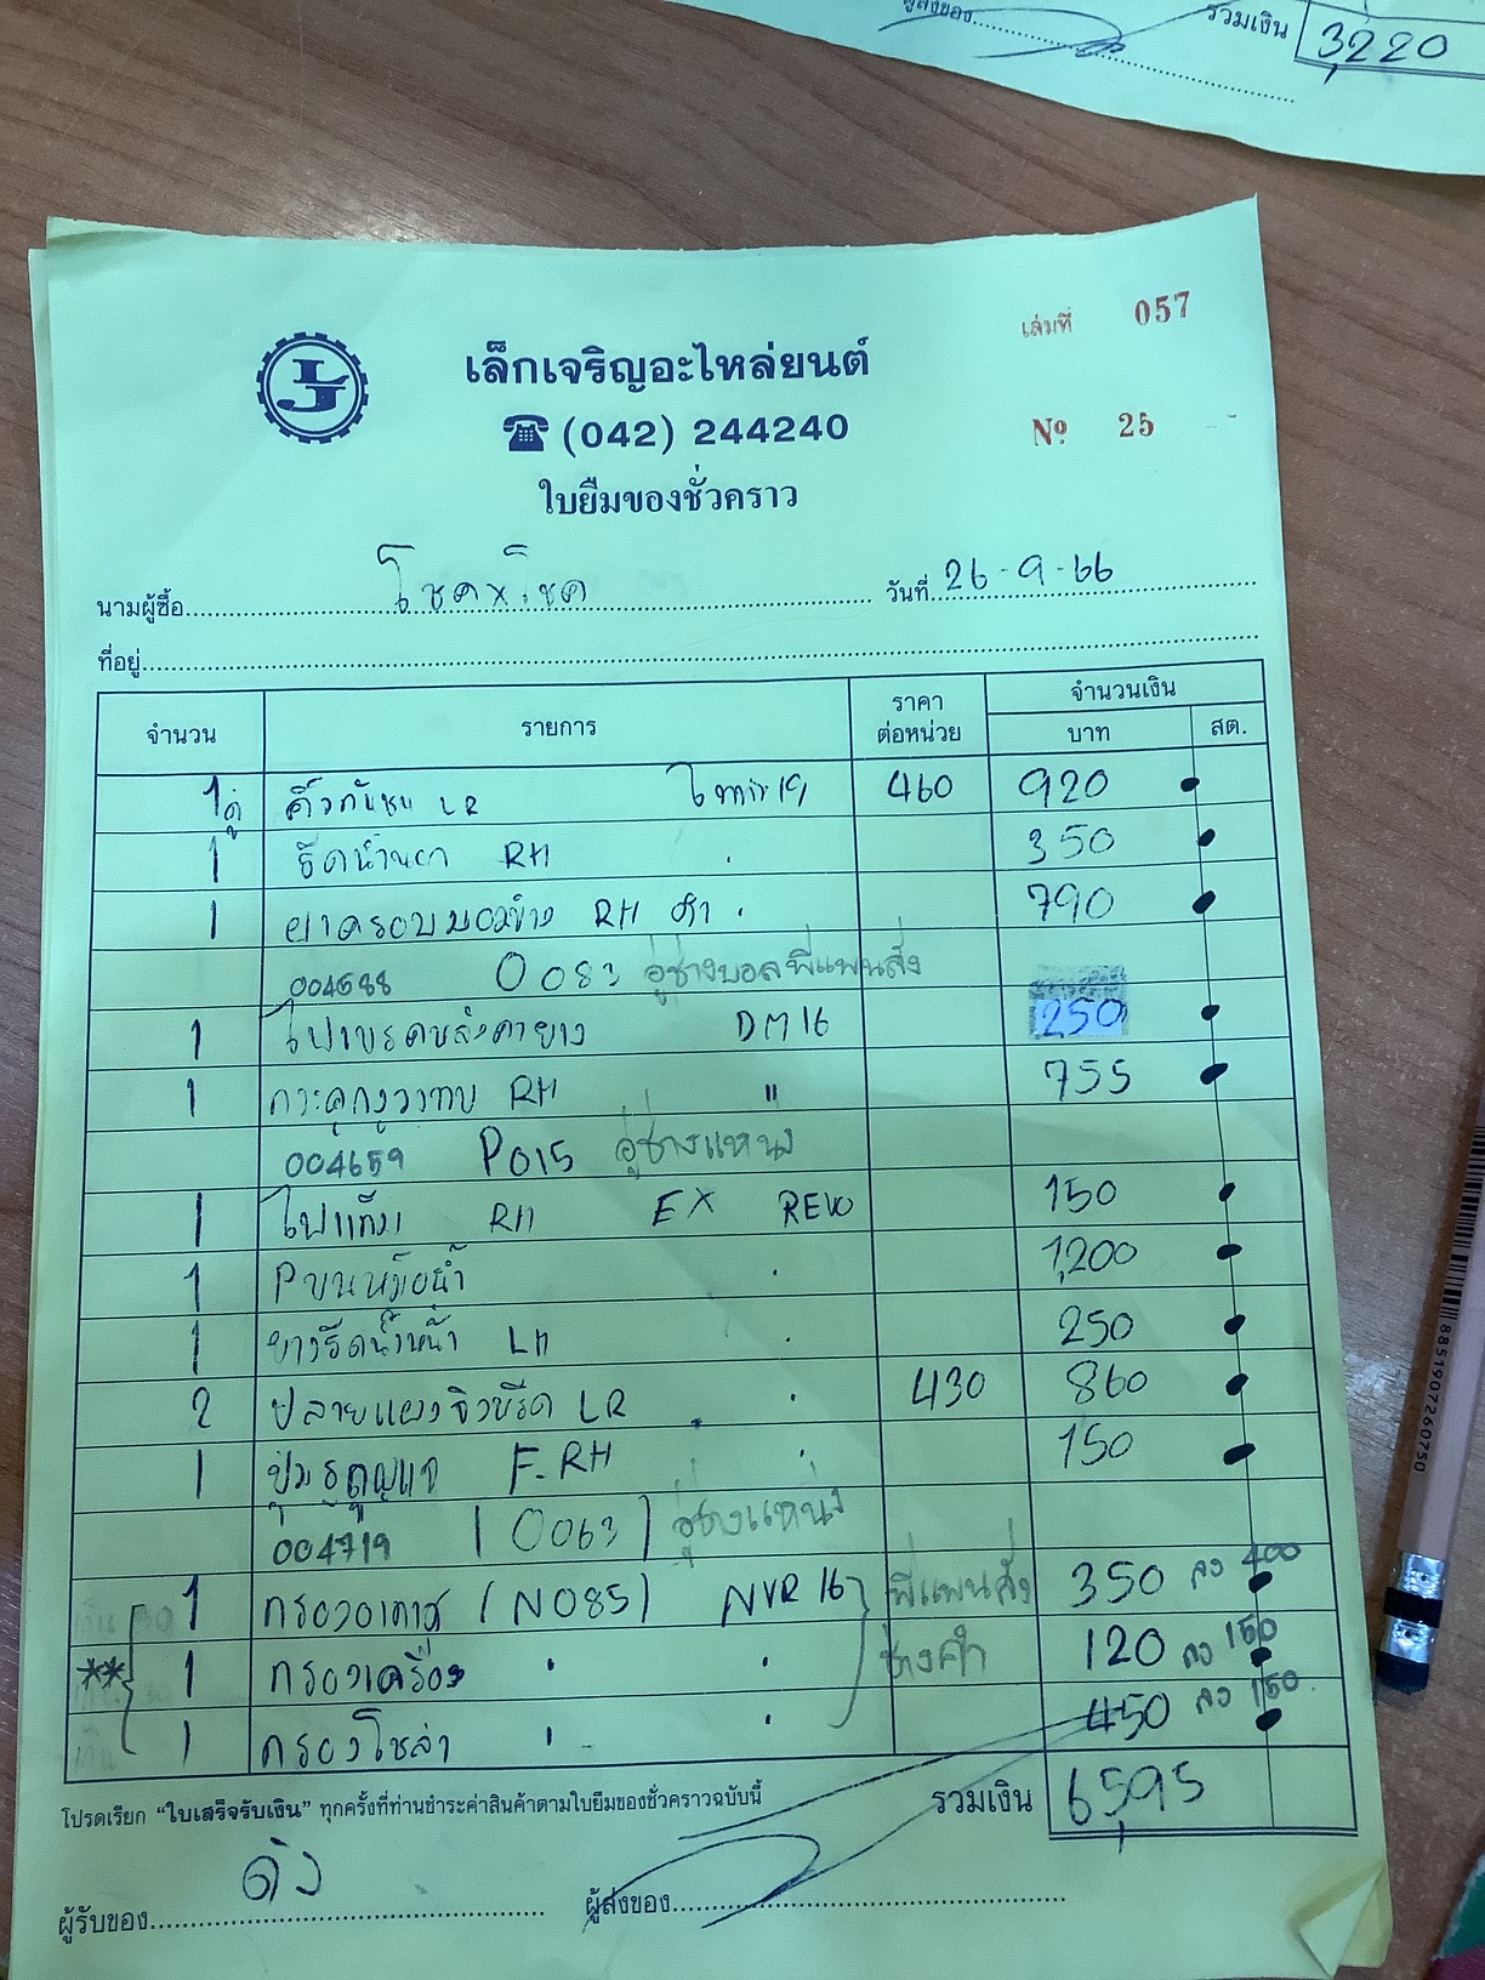 ผู้ส่งของ
รวมเงิน 3,220
เล่มที่ 057
LJ
เล็กเจริญอะไหล่ยนต์
(042) 244240
Nº 25
ใบยืมของชั่วคราว
นามผู้ซื้อ โชค x โชค วันที่ 26-9-66
ที่อยู่
จำนวน รายการ ราคาต่อหน่วย จำนวนเงิน
บาท สต.
1คู่ คิ้วกันชน LR 460 920
1 รีดน้ำนอก RH 350
1 ฝาครอบมองข้าง RH ดำ 790
004688 0083 อู่ช่างบอล พี่แพนสั่ง
1 ไฟเบรคหลังคายาว DM16 250
1 RH " 755
004659 P015 อู่ช่างแหน่ง
1 ไฟแก้ม RH EX REVO 150
1 Pบนหม้อน้ำ 1,200
1 ยางรีดน้ำหน้า LH 250
2 ปลายแผงจิ้งหรีด LR 430 860
1 กุญแจ F-RH 150
004719 (0063) อู่ช่างแหน่ง
1 กรองอากาศ (N085) NVR16 พี่แพนสั่ง 350 ลง 400
** 1 กรองเครื่อง ช่างคำ 120 ลง 150
1 กรองโซล่า 450 ลง 150
โปรดเรียก “ใบเสร็จรับเงิน” ทุกครั้งที่ท่านชำระค่าสินค้าตามใบยืมของชั่วคราวฉบับนี้ รวมเงิน 6,595
ผู้รับของ ผู้ส่งของ
8851907260750